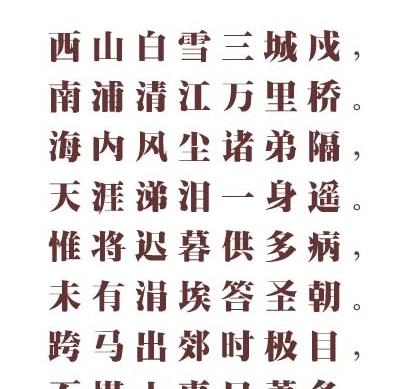 西山白雪三城戍，
南浦清江万里桥。
海内风尘诸弟隔，
天涯涕泪一身遥。
惟将迟暮供多病，
未有涓埃答圣朝。
跨马出郊时极目，